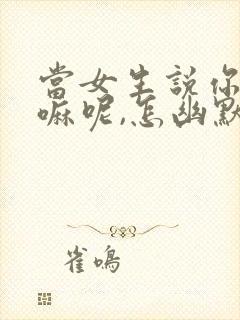 當女生説你
嘛呢,怎幽默
雀鳴